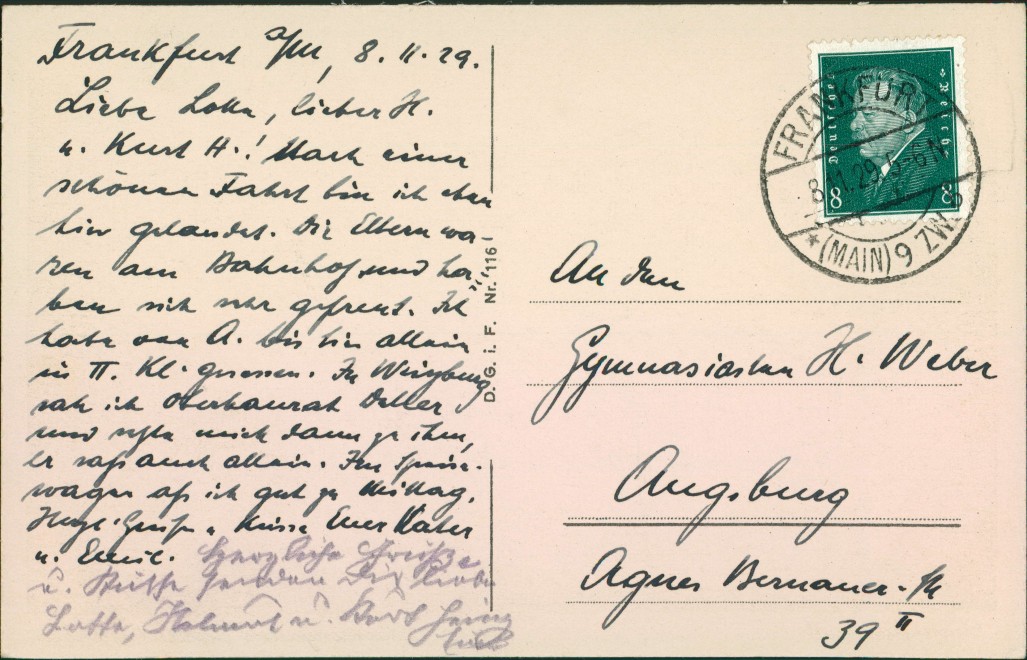 Frankfurt a/M, 8. 11. 29.
Liebe Lotte, lieber H.
u. Kurt H.! Nach einer
schönen Fahrt bin ich eben
hier gelandet. Die Eltern wa-
ren am Bahnhof und ha-
ben sich sehr gefreut. Ich
habe von A. bis hin allein
in II. Kl. gesessen. In Würzburg
sah ich Oberbaurat
und setzte mich dann zu ihm,
er saß auch allein. Im Speise-
wagen aß ich gut zu Mittag.
Herzl. Grüße u. Küsse Euer Vater
u. Emil. Herzliche Grüße
u. Küsse senden Dir liebe
Lotte, Helmut u. Kurt Heinz
D. G. i. F. Nr. 116
Deutsches Reich
8 8
FRANKFURT
8.11.29. 5-6 N
* (MAIN) 9 ZW
An den
Gymnasiasten H. Weber
Augsburg
Agnes Bernauer-Str
39 II